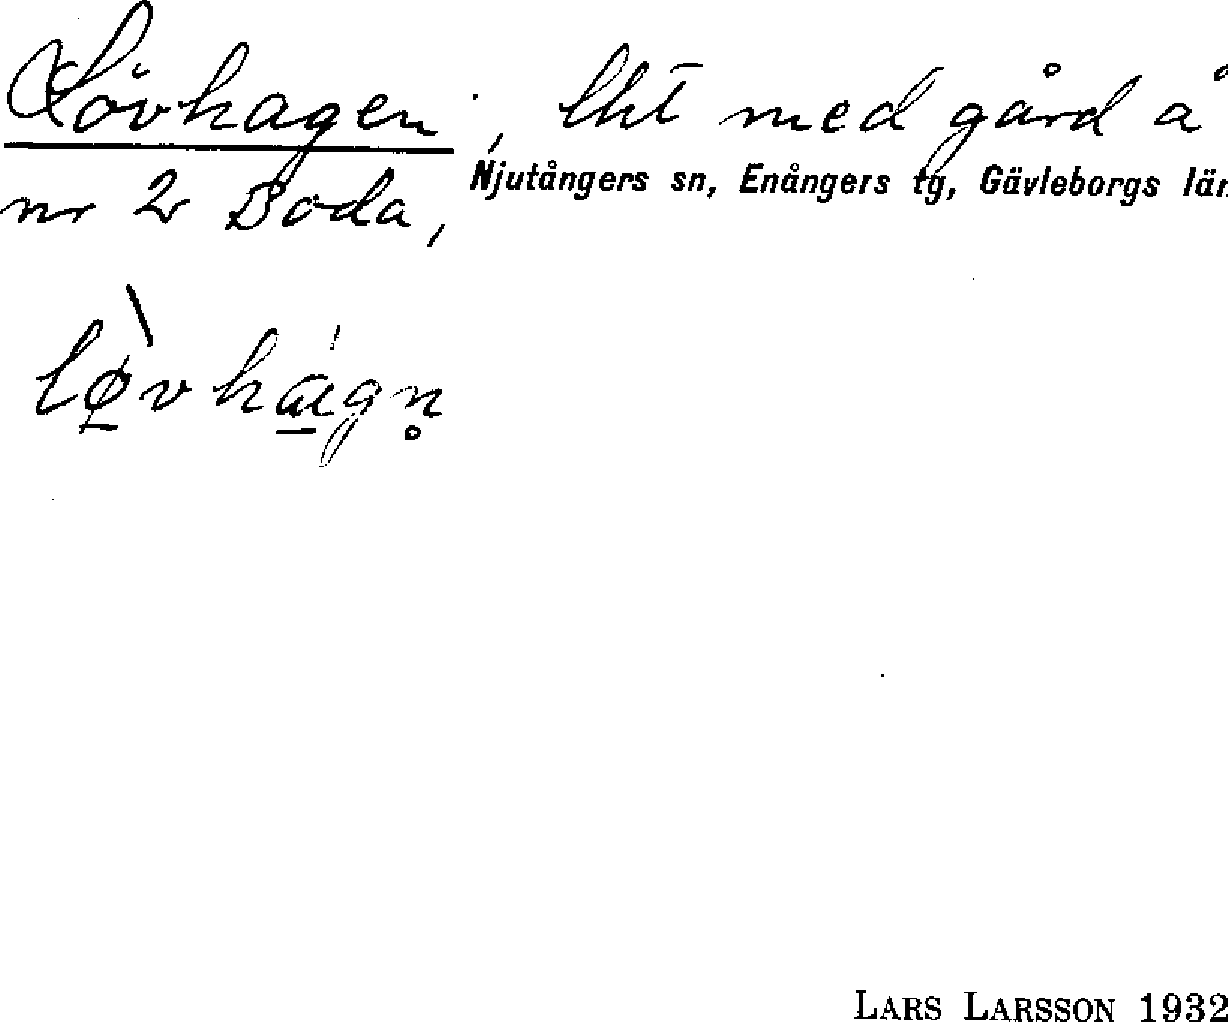 Lövhagen, lht med gård å
Njutångers sn, Enångers tg, Gävleborgs län
nr 2 Boda,
lø̀vhág̣n̥
LARS LARSSON 1932